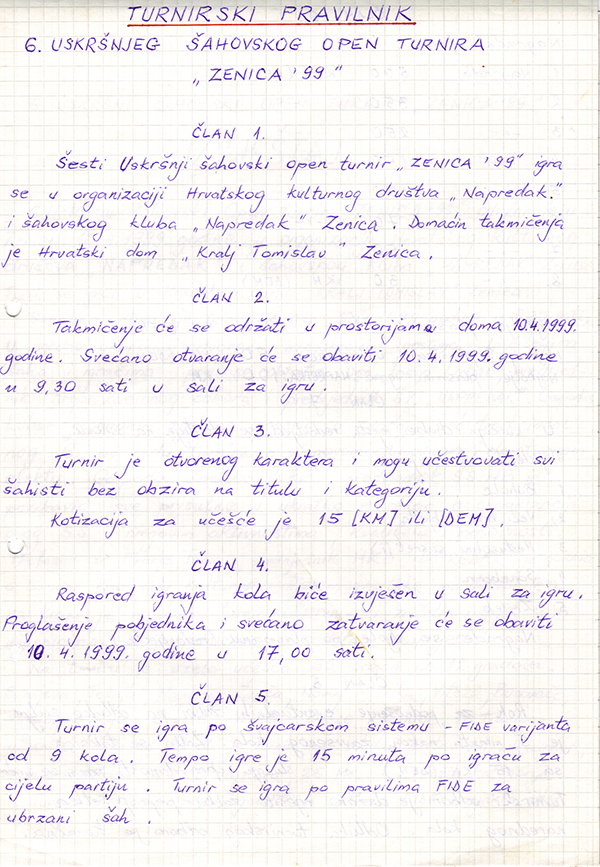 TURNIRSKI PRAVILNIK
6. USKRŠNJEG ŠAHOVSKOG OPEN TURNIRA
„ZENICA '99"
ČLAN 1.
Šesti Uskršnji šahovski open turnir „ZENICA '99" igra
se u organizaciji Hrvatskog kulturnog društva „Napredak."
i šahovskog kluba „Napredak" Zenica. Domaćin takmičenja
je Hrvatski dom „Kralj Tomislav" Zenica.
ČLAN 2.
Takmičenje će se održati u prostorijama doma 10.4.1999.
godine. Svečano otvaranje će se obaviti 10.4.1999. godine
u 9,30 sati u sali za igru.
ČLAN 3.
Turnir je otvorenog karaktera i mogu učestvovati svi
šahisti bez obzira na titulu i kategoriju.
Kotizacija za učešće je 15 [KM] ili [DEM].
ČLAN 4.
Raspored igranja kola biće izvješen u sali za igru.
Proglašenje pobjednika i svečano zatvaranje će se obaviti
10.4.1999. godine u 17,00 sati.
ČLAN 5.
Turnir se igra po švajcarskom sistemu - FIDE varijanta
od 9 kola. Tempo igre je 15 minuta po igraču za
cijelu partiju. Turnir se igra po pravilima FIDE za
ubrzani šah.